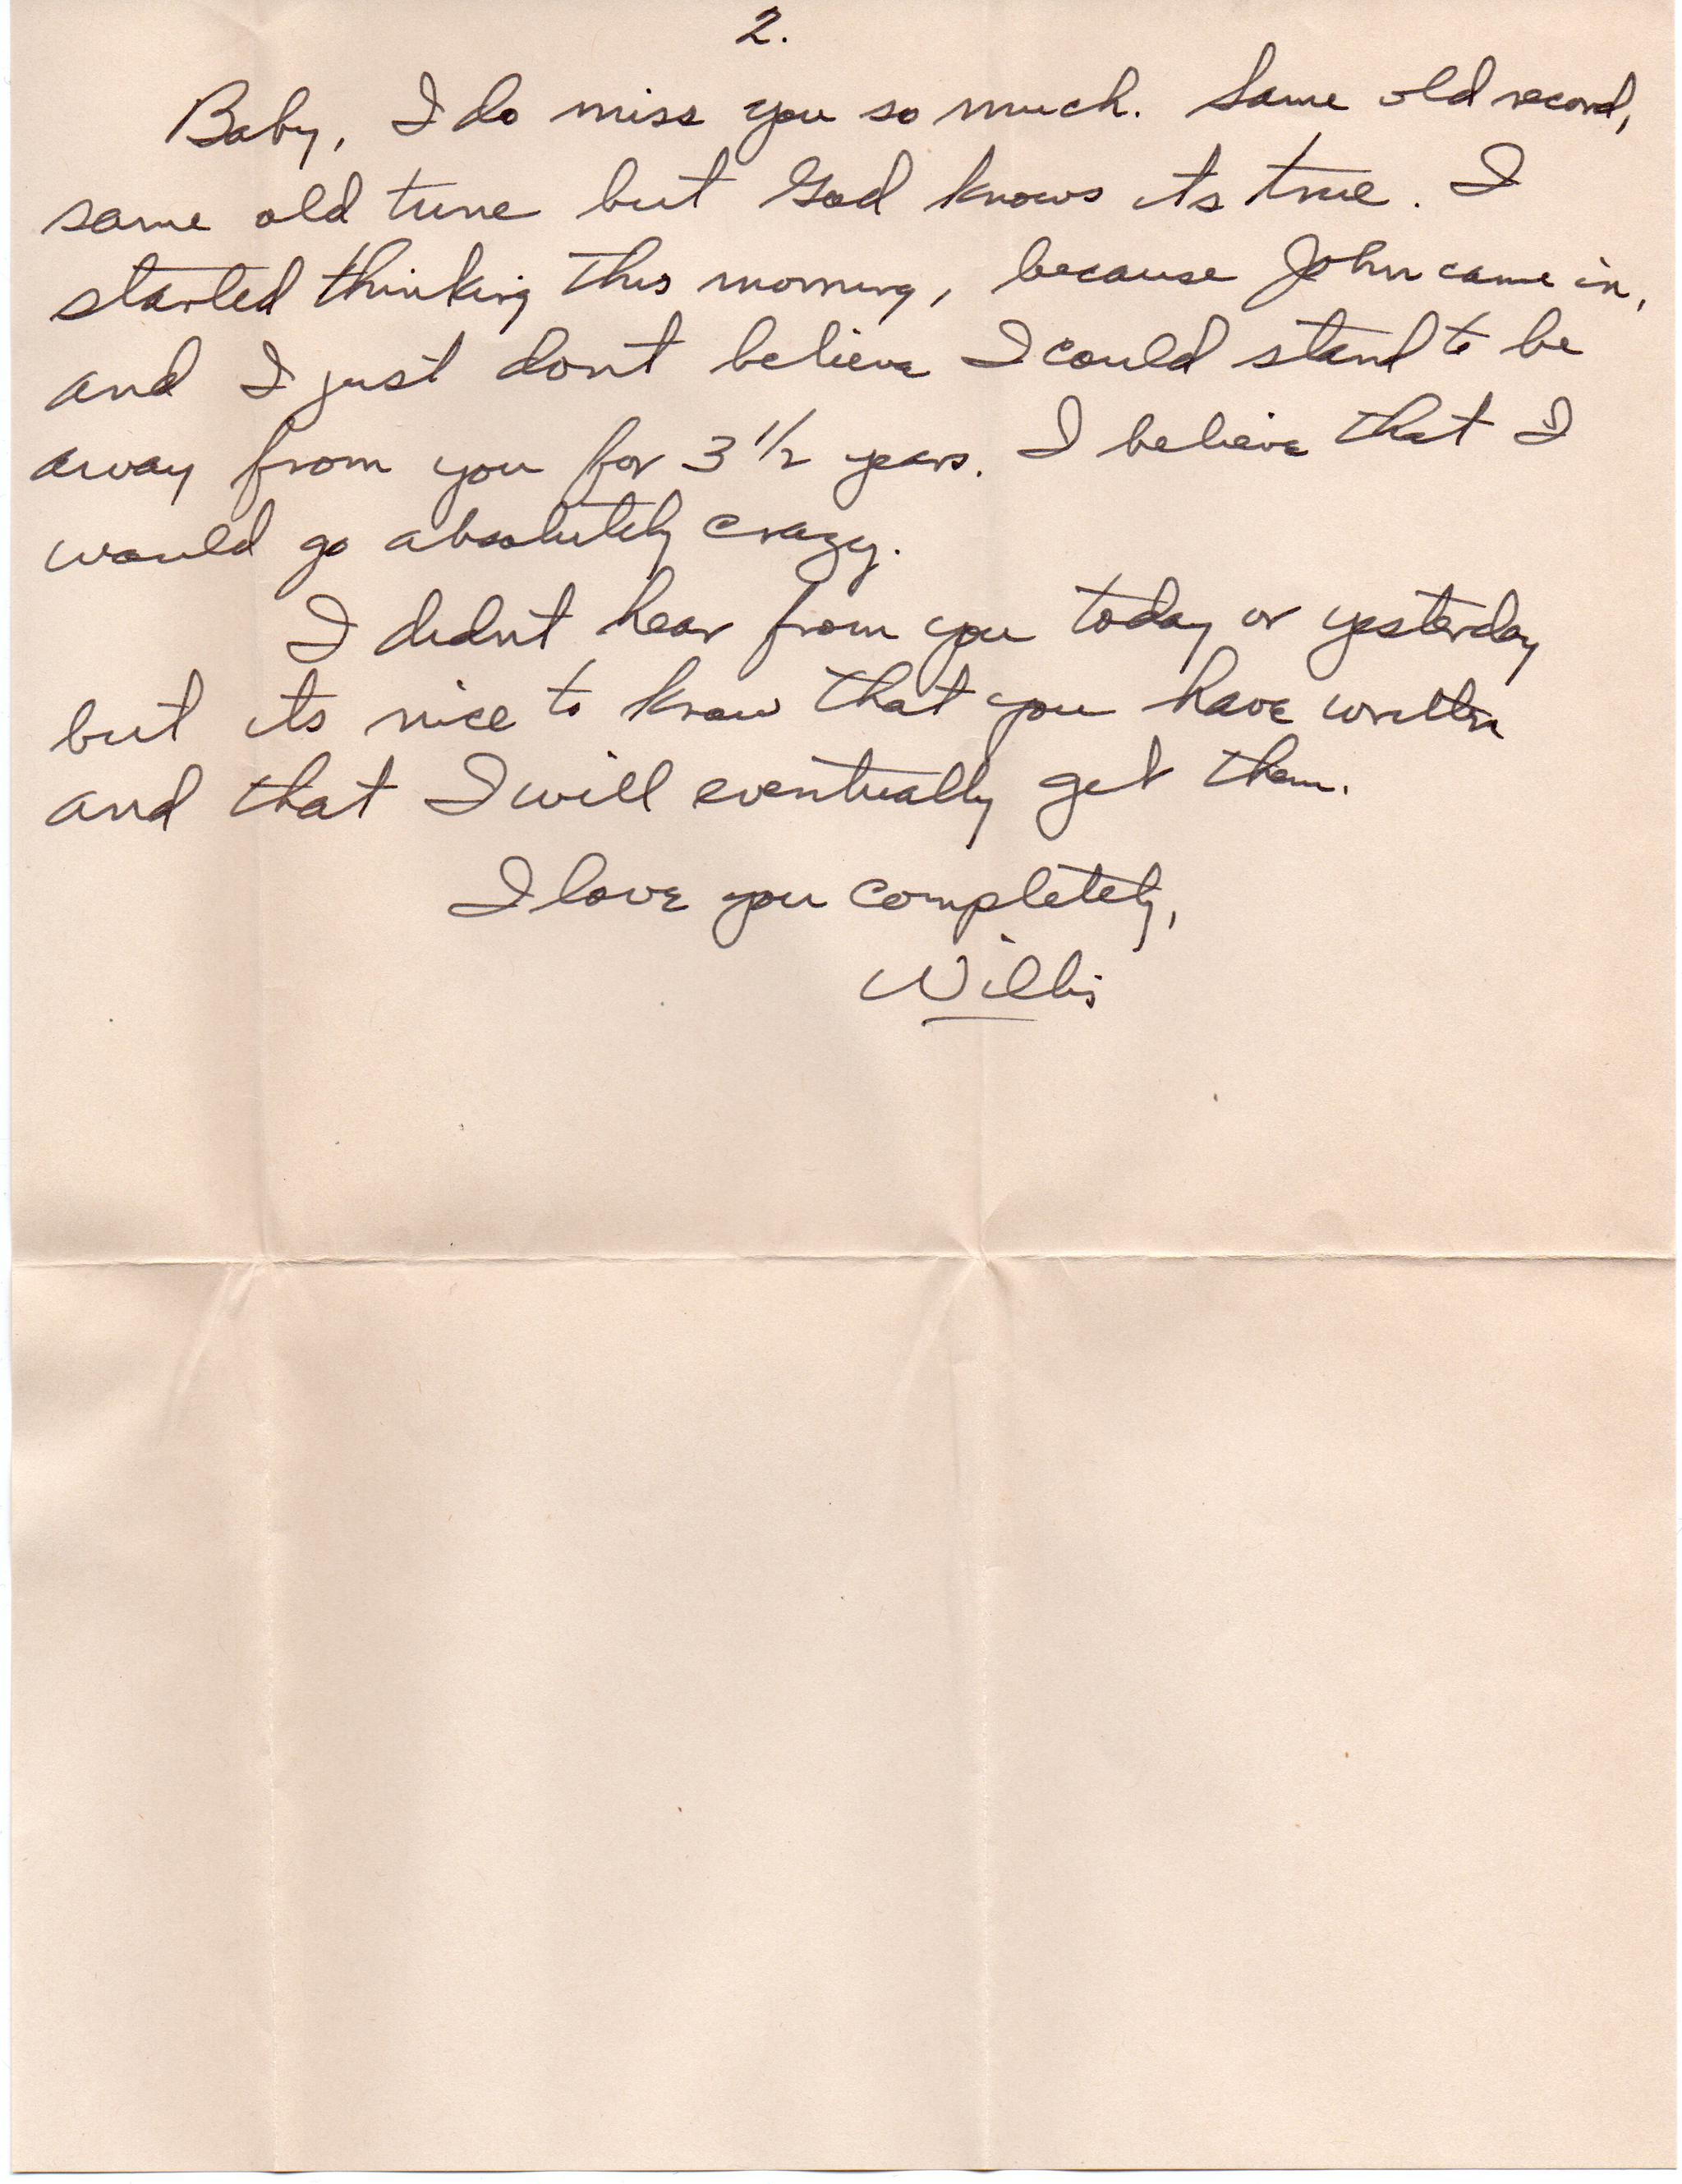 2.
Baby, I do miss you so much. Same old record,
same old tune but God knows its true. I
started thinking this morning, because John came in,
and I just dont believe I could stand to be
away from you for 3 1/2 years. I believe that I
would go absolutely crazy.
I didnt hear from you today or yesterday
but its nice to know that you have written
and that I will eventually get them.
I love you completely,
Willis